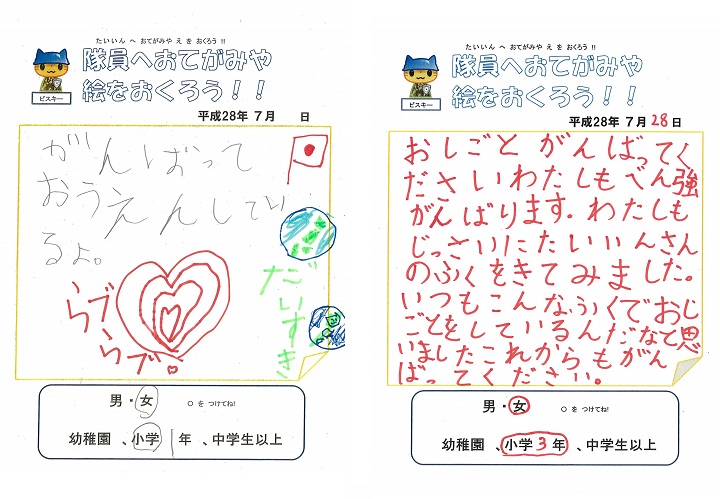 たいいん へ おてがみや え を おくろう !!
隊員へおてがみや
絵をおくろう！！
ピスキー
平成28年 7月 日
がんばって
おうえんしてい
るよ。
だいすき
らブらブ。
男・女 ○ を つけてね!
幼稚園 、小学 1 年 、中学生以上
たいいん へ おてがみや え を おくろう !!
隊員へおてがみや
絵をおくろう！！
ピスキー
平成28年 7月 28日
おしごと がんばってく
ださいわたしもべん強
がんばります。わたしも
じっさいにたいいんさん
のふくをきてみました。
いつもこんなふくでおし
ごとをしているんだなと思
いましたこれからもがん
ばってください。
男・女 ○ を つけてね!
幼稚園 、小学 3 年 、中学生以上